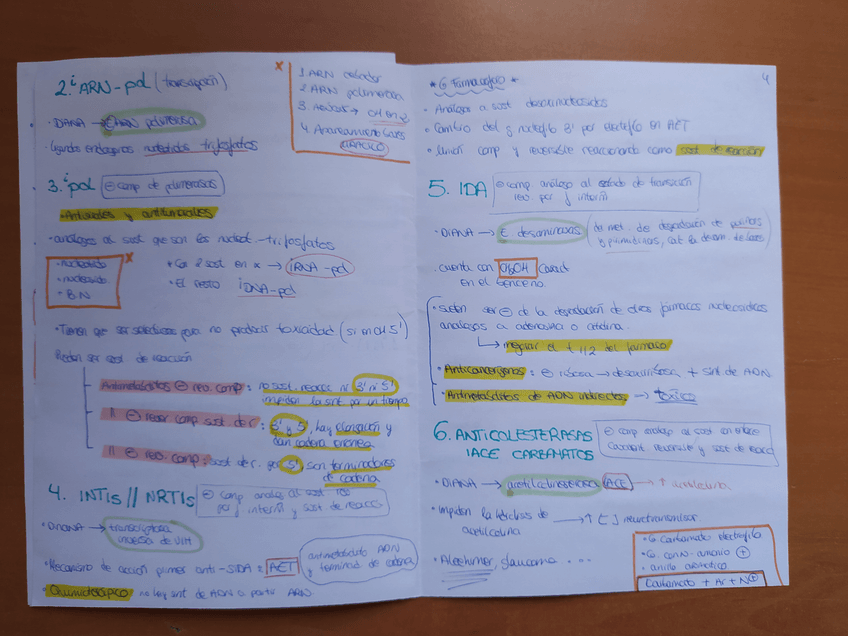 2. i ARN-pol (transcripción)
x
1. ARN cebador
2. ARN polimerasa
3. Azúcar → OH en 2'
4. Apareamiento bases
URACILO
• DIANA → E ARN polimerasa
• Ligandos endógenos nucleótidos trifosfatos
3. i pol
⊖ comp de polimerasas
• Antivirales y antitumorales
• análogos al sust que son los nucleot-trifosfatos
• nucleótido
• nucleósido
• B.N
x
* Con 2 sust en x → iRNA-pol
* El resto iDNA-pol
• Tienen que ser selectivos para no producir toxicidad (si en OH 5')
Pueden ser sust de reacción
Antimetabolitos ⊖ rev. comp: no sust. reacc ni 3' ni 5'
impiden la sint por un tiempo
" ⊖ rever comp sust de r: 3' y 5', hay elongación y
dan cadena errónea
" ⊖ rev. comp: sust de r. por 5', son terminadores
de cadena
4. INTIs // NRTIs
⊖ comp análogo al sust
por y sust de reacc
• DIANA → transcriptasa
inversa de VIH
• Mecanismo de acción primer anti-SIDA = AZT
antimetabolito ADN
y terminad de cadena
Quimioterápico no hay sint de ADN a partir ARN.
4
* G Farmacóforo *
• Análogos a sust desoxinucleósidos
• Cambio del g nucleófilo 3' por electrófilo en AZT
• Unión comp y reversible reaccionando como sust de reacción
5. IDA
⊖ comp análogo al estado de transición
rev por
• DIANA → E. desaminasas
(de met. de degradación de purinas
y pirimidinas, cat la desam. de bases)
• cuenta con CH2OH caract
en el benceno.
• suelen ser ⊖ de la degradación de otros fármacos nucleosídicos
análogos a adenosina o citidina.
↳ mejorar el t 1/2 del fármaco
• Anticancerígenos: ⊖ ribosa → desoxirribosa + sint de ADN
• Antimetabolitos de ADN indirectos → tóxico
6. ANTICOLESTERASAS
IACE CARBAMATOS
⊖ comp análogo al sust en enlace
covalent reversible y sust de reacc
• DIANA → acetilcolinesterasa ACE → ↑ acetilcolina
• Impiden la hidrólisis de
acetilcolina
→ ↑ [ ] neurotransmisor
• Alzehimer, glaucoma ...
• G Carbamato electrófilo
• G con N-amonio ⊕
• anillo aromático
Carbamato + Ar + N⊕